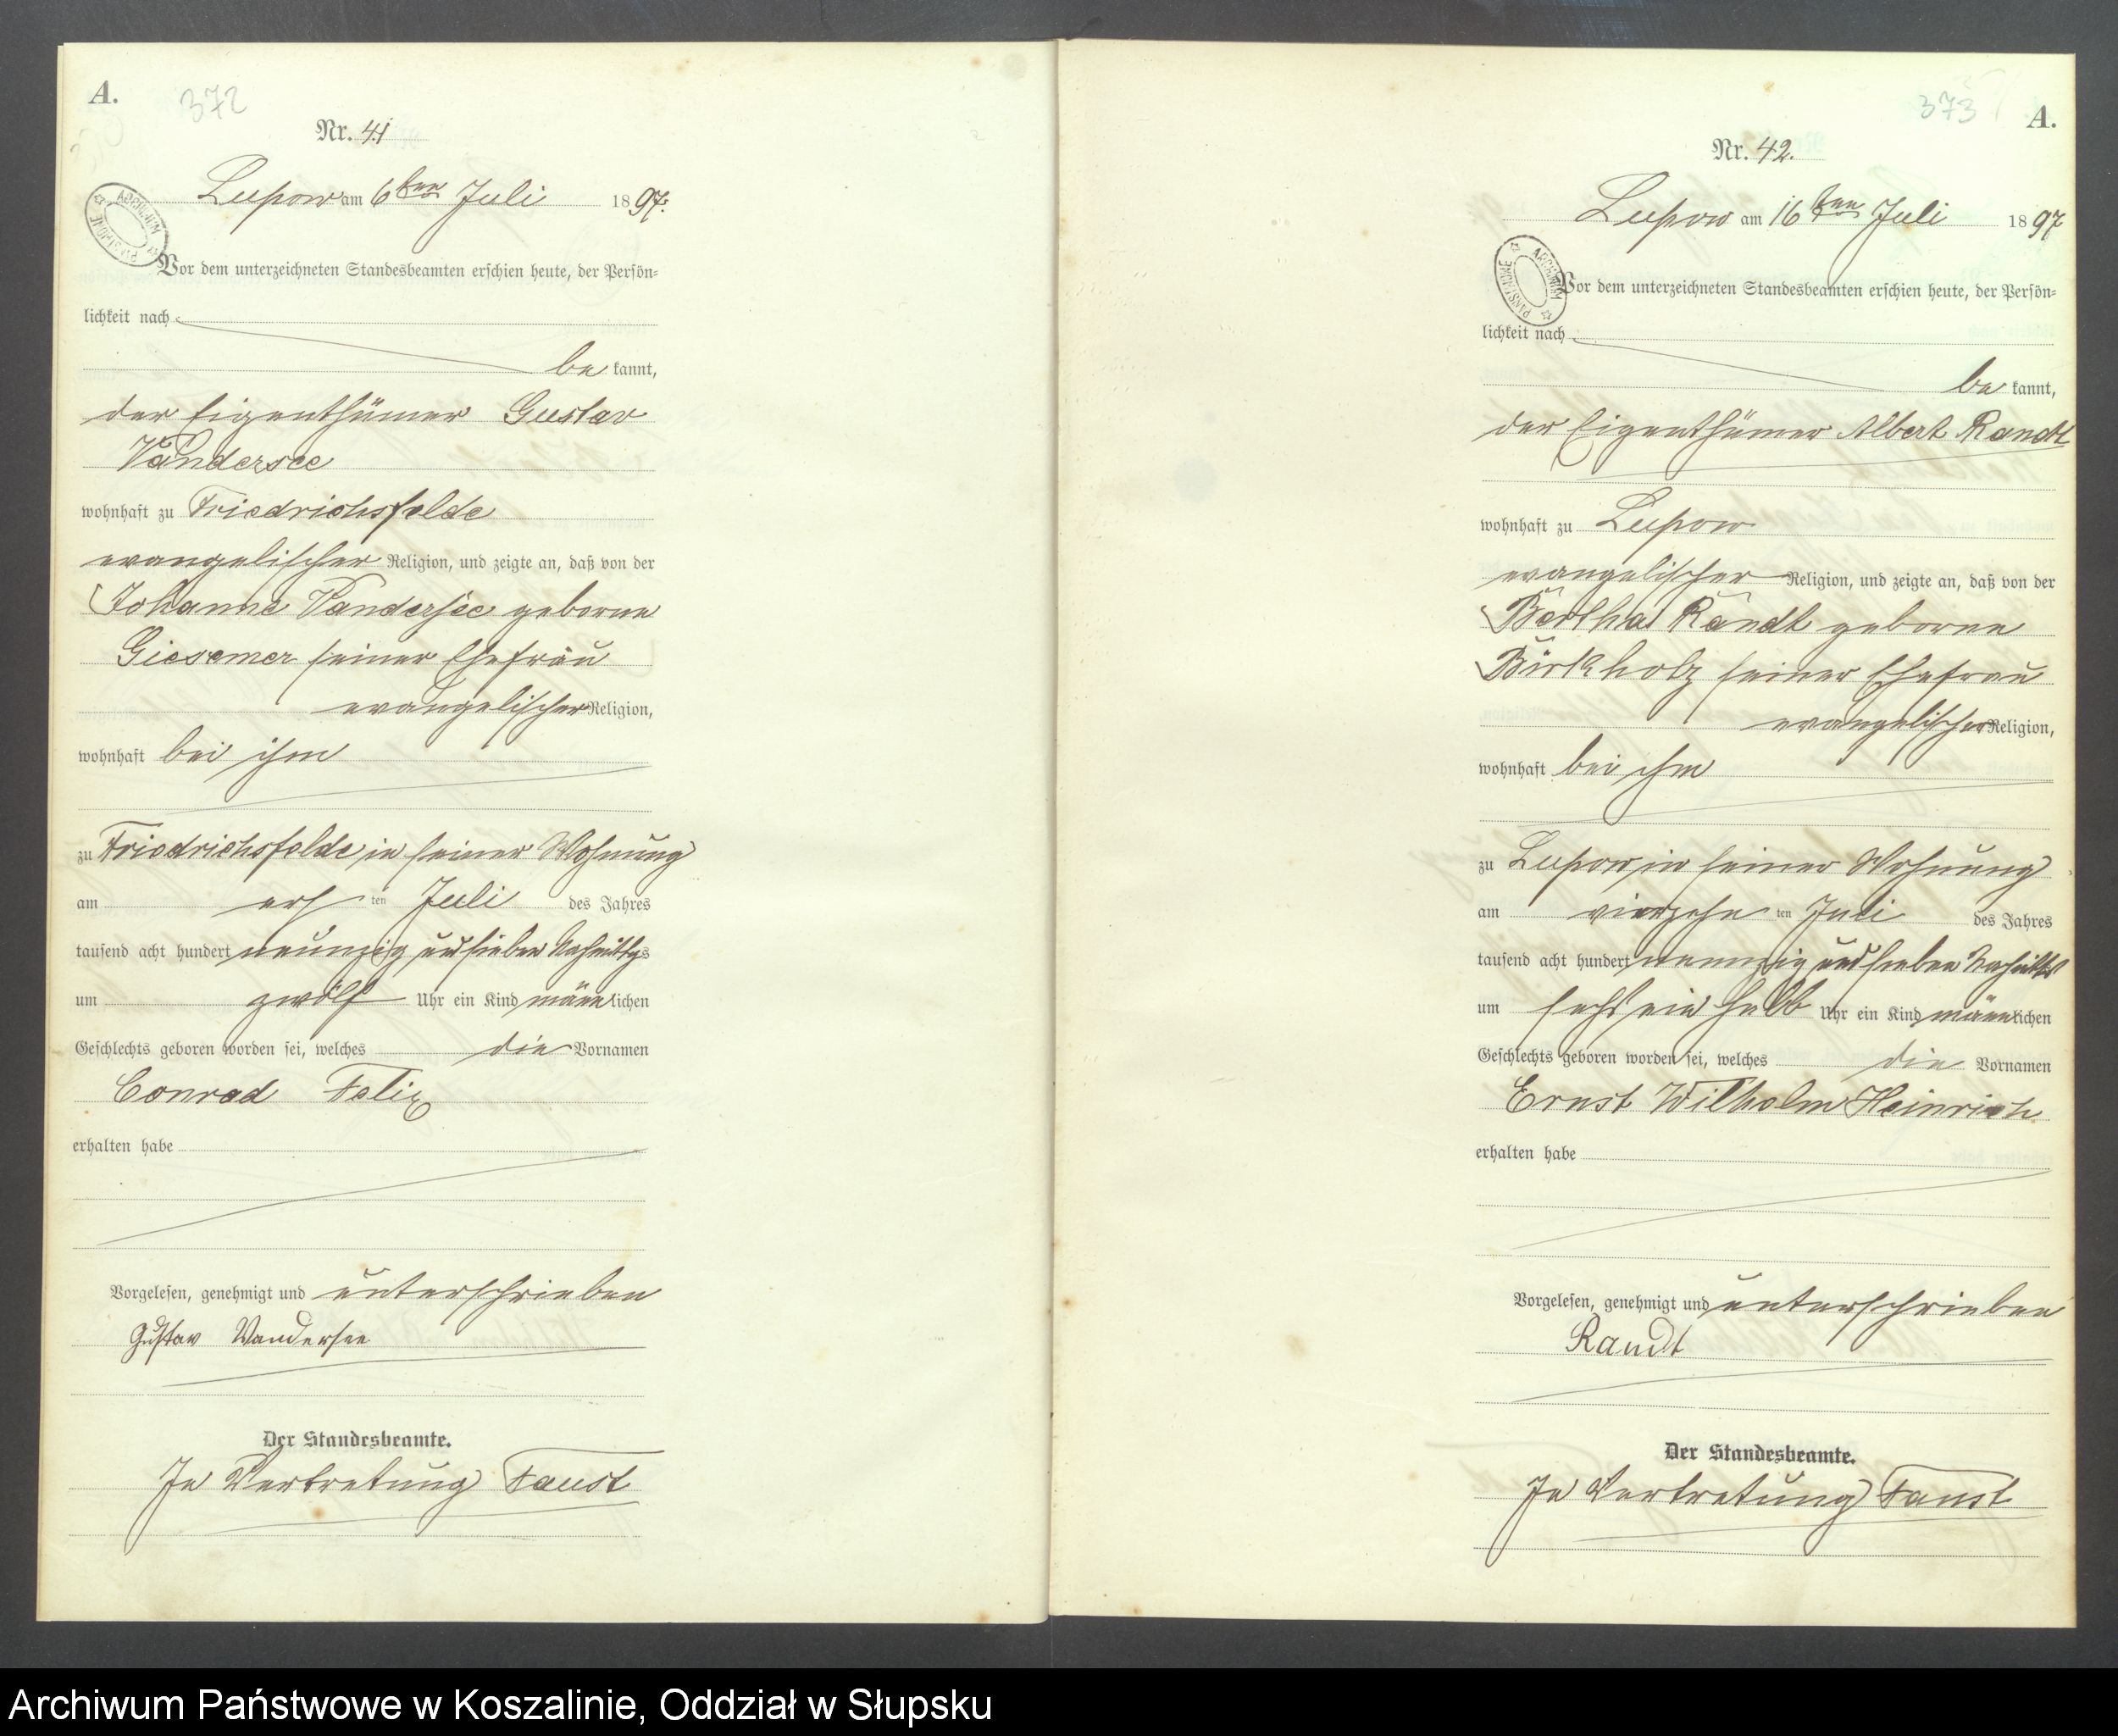 A.
372
Nr. 41
Lupow am 6ten Juli 1897.
ARCHIWUM PAŃSTWOWE
Vor dem unterzeichneten Standesbeamten erschien heute, der Persön=
lichkeit nach
be kannt,
der Eigenthümer Gustav
Vandersee
wohnhaft zu Friedrichsfelde
evangelischer Religion, und zeigte an, daß von der
Johanne Vandersee geborne
Giesemer seiner Ehefrau
evangelischer Religion,
wohnhaft bei ihm
zu Friedrichsfelde in seiner Wohnung
am ersten Juli des Jahres
tausend acht hundert neunzig und sieben Nachmittags
um zwölf Uhr ein Kind männlichen
Geschlechts geboren worden sei, welches die Vornamen
Conrad Felix
erhalten habe
Vorgelesen, genehmigt und unterschrieben
Gustav Vandersee
Der Standesbeamte.
In Vertretung Faust
373
A.
Nr. 42.
Lupow am 16ten Juli 1897
ARCHIWUM PAŃSTWOWE
Vor dem unterzeichneten Standesbeamten erschien heute, der Persön=
lichkeit nach
be kannt,
der Eigenthümer Albert Randt
wohnhaft zu Lupow
evangelischer Religion, und zeigte an, daß von der
Bertha Randt geborne
Birkholz seiner Ehefrau
evangelischer Religion,
wohnhaft bei ihm
zu Lupow, in seiner Wohnung
am vierzehnten des Jahres
tausend acht hundert neunzig und sieben
um sechs ein halb Uhr ein Kind männlichen
Geschlechts geboren worden sei, welches die Vornamen
Ernst Wilhelm Heinrich
erhalten habe
Vorgelesen, genehmigt und unterschrieben
Randt
Der Standesbeamte.
In Vertretung Faust
Archiwum Państwowe w Koszalinie, Oddział w Słupsku